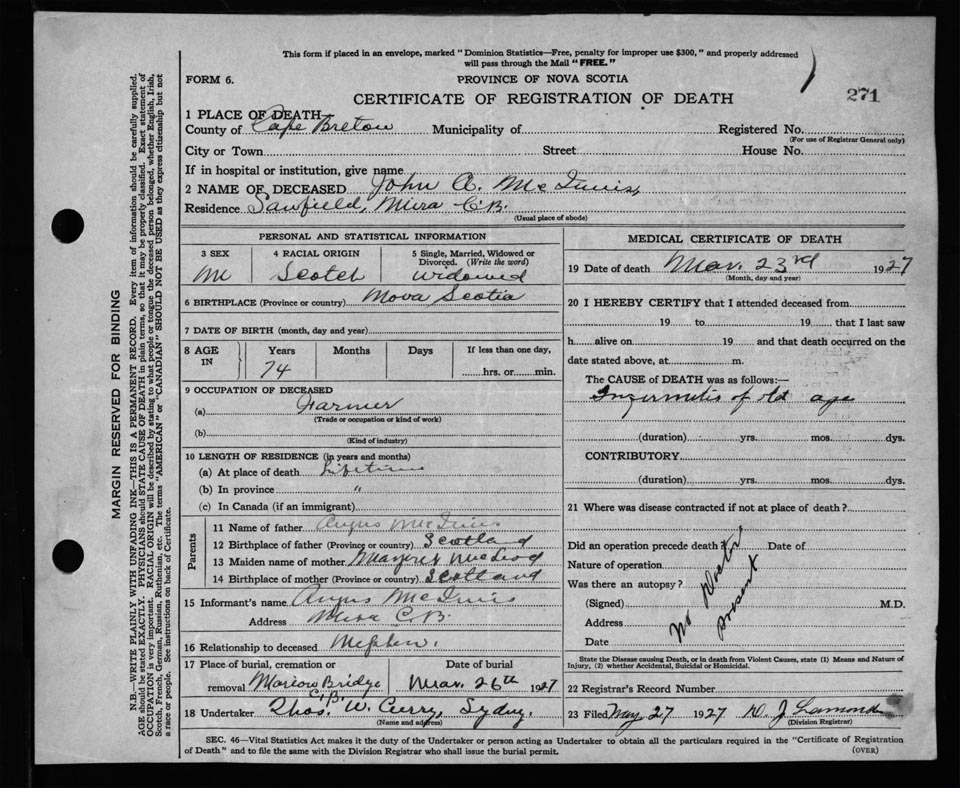 This form if placed in an envelope, marked "Dominion Statistics—Free, penalty for improper use $300," and properly addressed
will pass through the Mail "FREE."
FORM 6.
PROVINCE OF NOVA SCOTIA
CERTIFICATE OF REGISTRATION OF DEATH
271
1 PLACE OF DEATH
County of Cape Breton Municipality of Registered No.
(For use of Registrar General only)
City or Town Street House No.
If in hospital or institution, give name
2 NAME OF DECEASED John A. McInnis,
Residence Sawfield, Mira C.B.
(Usual place of abode)
PERSONAL AND STATISTICAL INFORMATION
3 SEX
M
4 RACIAL ORIGIN
Scotch
5 Single, Married, Widowed or
Divorced. (Write the word)
widowed
6 BIRTHPLACE (Province or country) Nova Scotia
7 DATE OF BIRTH (month, day and year)
8 AGE
IN
Years Months Days If less than one day,
74 hrs. or min.
9 OCCUPATION OF DECEASED
(a) Farmer
(Trade or occupation or kind of work)
(b)
(Kind of industry)
10 LENGTH OF RESIDENCE (in years and months)
(a) At place of death Lifetime
(b) In province "
(c) In Canada (if an immigrant)
Parents
11 Name of father Angus McInnis
12 Birthplace of father (Province or country) Scotland
13 Maiden name of mother Margret McLeod
14 Birthplace of mother (Province or country) Scotland
15 Informant's name Angus McInnis
Address Mira C.B.
16 Relationship to deceased Nephew.
17 Place of burial, cremation or Date of burial
removal Marion Bridge Mar. 26th 1927
C.B.
18 Undertaker Thos. W. Curry, Sydney.
(Name and address)
MEDICAL CERTIFICATE OF DEATH
19 Date of death Mar. 23rd 1927
(Month, day and year)
20 I HEREBY CERTIFY that I attended deceased from
19 to 19 that I last saw
h alive on 19 and that death occurred on the
date stated above, at m.
The CAUSE of DEATH was as follows:—
Infirmitis of old age
(duration) yrs. mos. dys.
CONTRIBUTORY.
(duration) yrs. mos. dys.
21 Where was disease contracted if not at place of death?
Did an operation precede death? Date of
Nature of operation
Was there an autopsy?
(Signed) M.D.
Address
Date
No Doctor
present
State the Disease causing Death, or in death from Violent Causes, state (1) Means and Nature of
Injury, (2) whether Accidental, Suicidal or Homicidal.
22 Registrar's Record Number
23 Filed May 27 1927 D. J. Lamond
(Division Registrar)
SEC. 46—Vital Statistics Act makes it the duty of the Undertaker or person acting as Undertaker to obtain all the particulars required in the "Certificate of Registration
of Death" and to file the same with the Division Registrar who shall issue the burial permit.
(OVER)
MARGIN RESERVED FOR BINDING
N.B.—WRITE PLAINLY WITH UNFADING INK—THIS IS A PERMANENT RECORD. Every item of information should be carefully supplied.
AGE should be stated EXACTLY. PHYSICIANS should STATE CAUSE OF DEATH in plain terms, so that it may be properly classified. Exact statement of
OCCUPATION is very important. RACIAL ORIGIN will be described by stating to what people or tongue the deceased person belonged, whether English, Irish,
Scotch, French, German, Russian, Ruthenian, etc. The terms "AMERICAN" or "CANADIAN" SHOULD NOT BE USED as they express citizenship but not
a race or people. See instructions on back of Certificate.